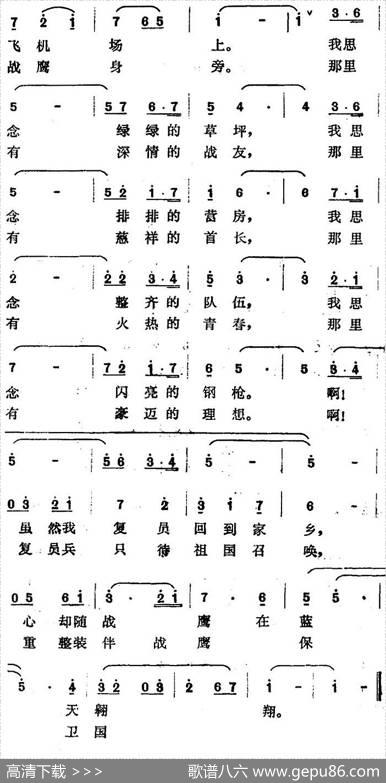 7 2 i | 7 6 5 | i - | i ∨ 3·6
飞 机 场 上。 我思
战 鹰 身 旁。 那里
5 - | 57 6·7 | 5 4 · | 4 3·6
念 绿绿的 草 坪, 我思
有 深情的 战 友, 那里
5 - | 52 i·7 | i 6 · | 6 7·i
念 排排的 营 房, 我思
有 慈祥的 首 长, 那里
2 - | 22 3·4 | 5 3 · | 3 2·i
念 整齐的 队 伍, 我思
有 火热的 青 春, 那里
7 - | 72 i·7 | 6 5 · | 5 3·4
念 闪亮的 钢 枪。 啊!
有 豪迈的 理 想。 啊!
5 - | 56 3·4 | 5 - | 5 -
03 21 | 7 2 | 3 i 7 | 6 -
虽然我 复 员 回到家 乡,
复员兵 只 待 祖国召 唤,
05 6i | 3 · 2i | 7 · 6 | 5 5 ·
心却随 战 鹰 在 蓝
重整装 伴 战 鹰 保
5 · 4 | 32 03 | 2 67 | i · | i - ‖
天翱 翔。
卫国
高清下载 >>> 歌谱八六 www.gepu86.com